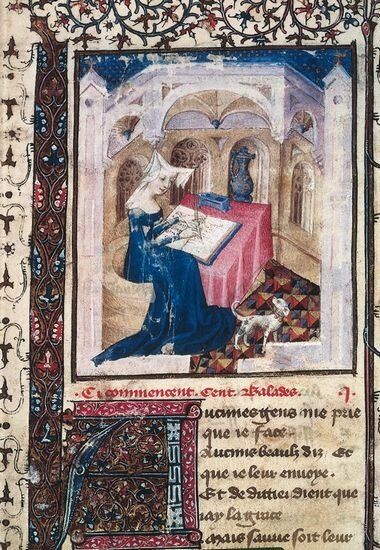 Cy commencent Cent Balades. .I.
Aucunes gens me prie
que ie face
Aucuns beaulz diz Et
que ie leur envoye.
Et de dittier dient que
iay la grace
Mais sauve soit leur